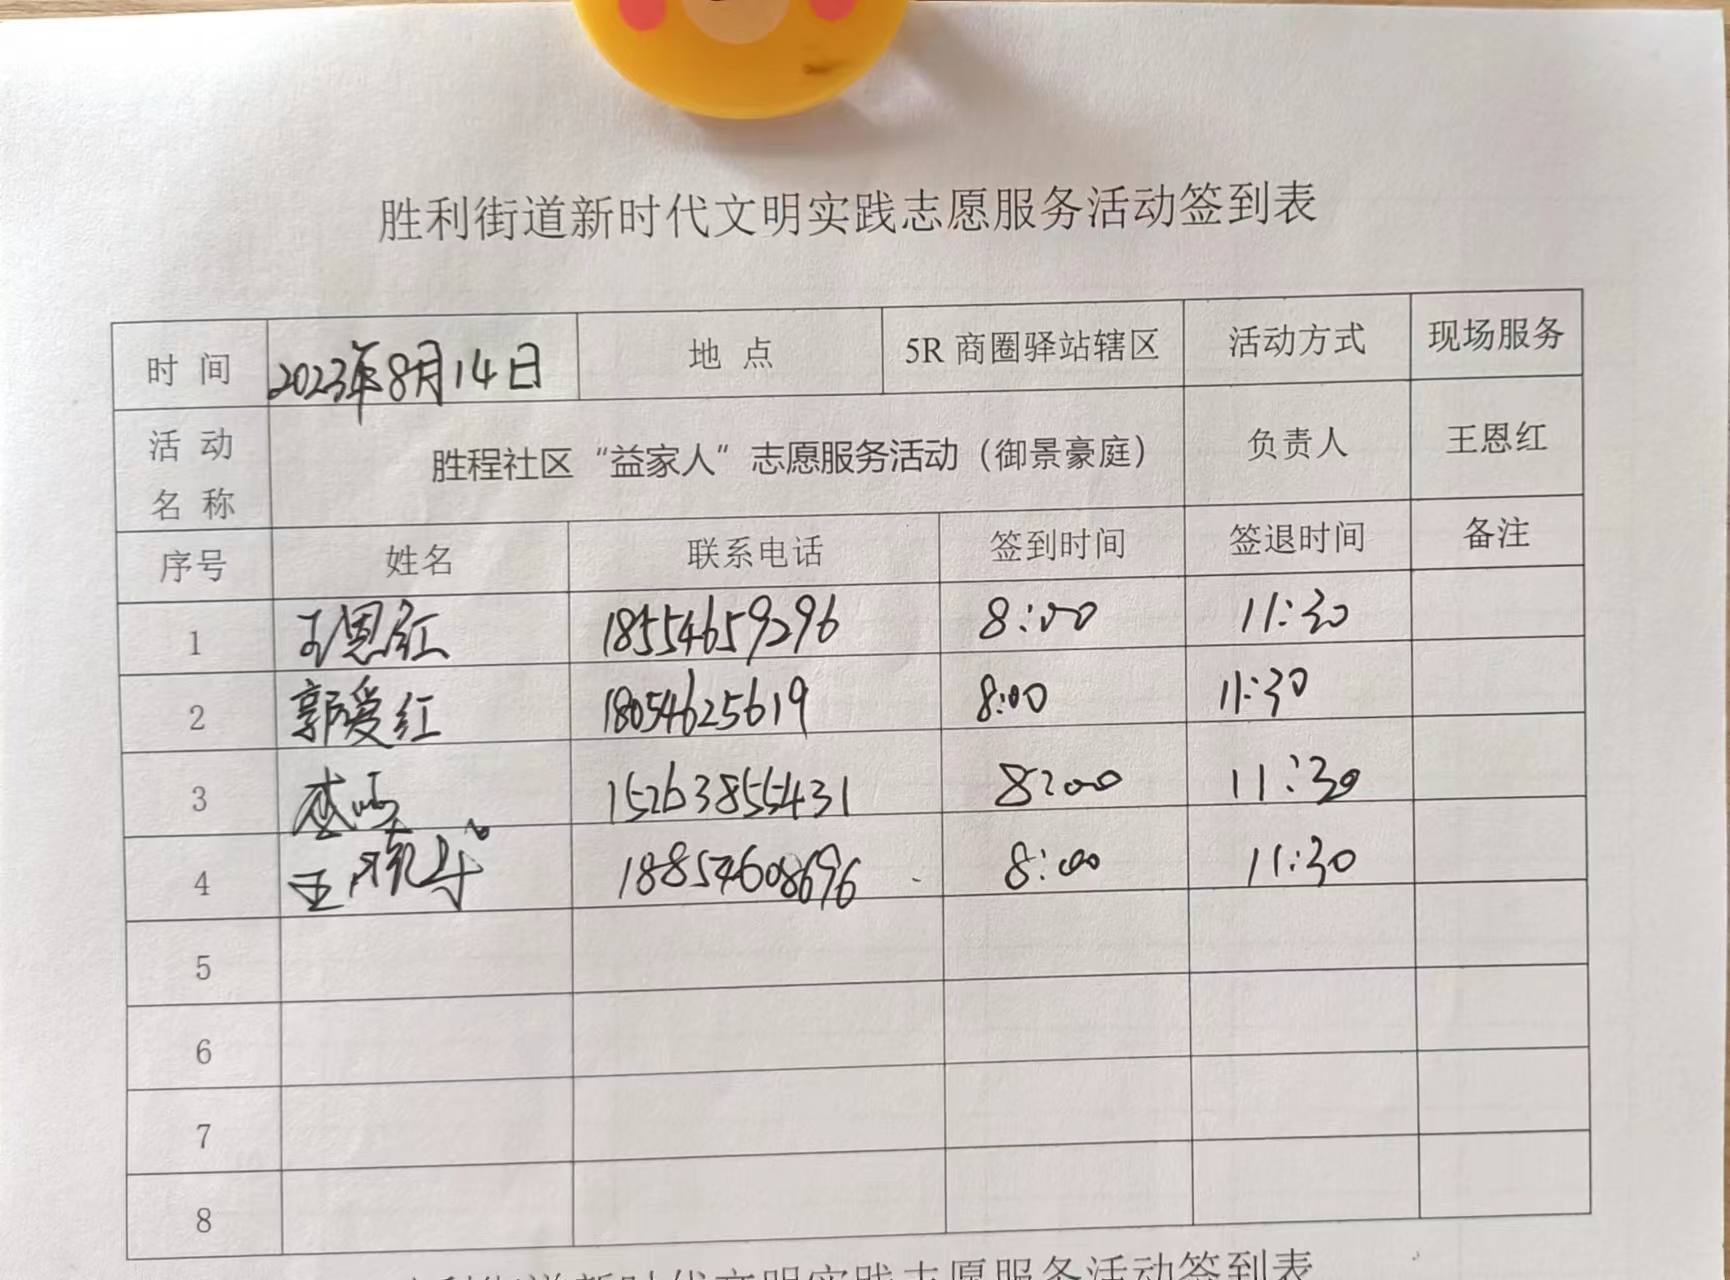 胜利街道新时代文明实践志愿服务活动签到表
时 间 2023年8月14日 地 点 5R 商圈驿站辖区 活动方式 现场服务
活 动
名 称 胜程社区“益家人”志愿服务活动（御景豪庭） 负责人 王恩红
序号 姓名 联系电话 签到时间 签退时间 备注
1 王恩红 18554659296 8:00 11:30
2 郭爱红 18054625619 8:00 11:30
3 15263855431 8:00 11:30
4 王 18854608696 8:00 11:30
5
6
7
8
利街道新时代文明实践志愿服务活动签到表